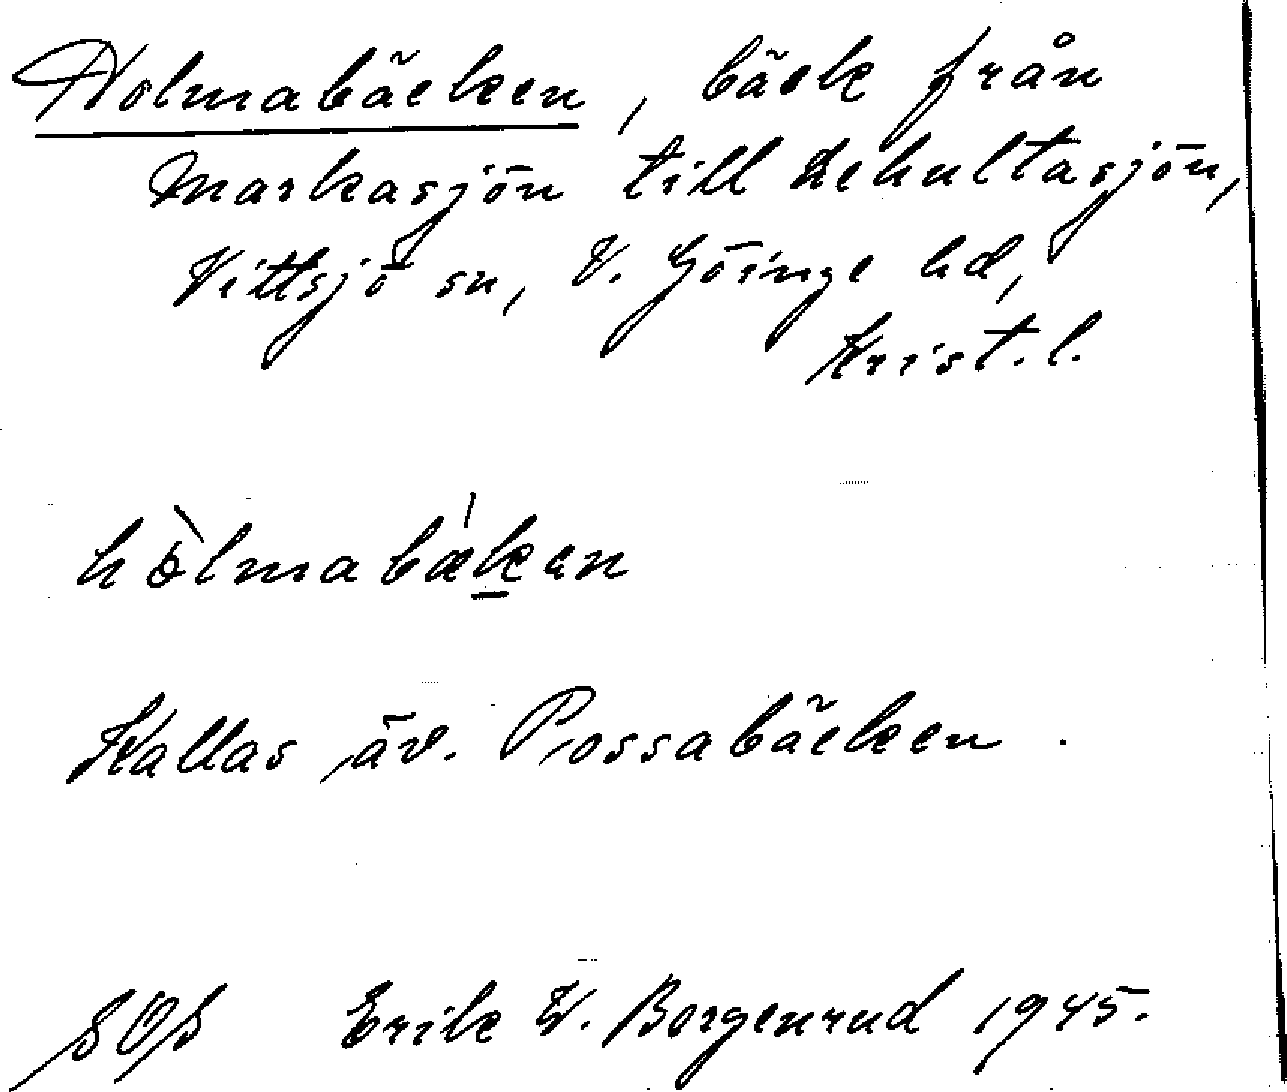 Holmabäcken, bäck från
Markasjön till Lehultasjön,
Vittsjö sn, V. Göinge hd,
Krist. l.
hòlmabækən
Kallas äv. Possabäcken.
SOS Erik W. Borgenrud 1945.